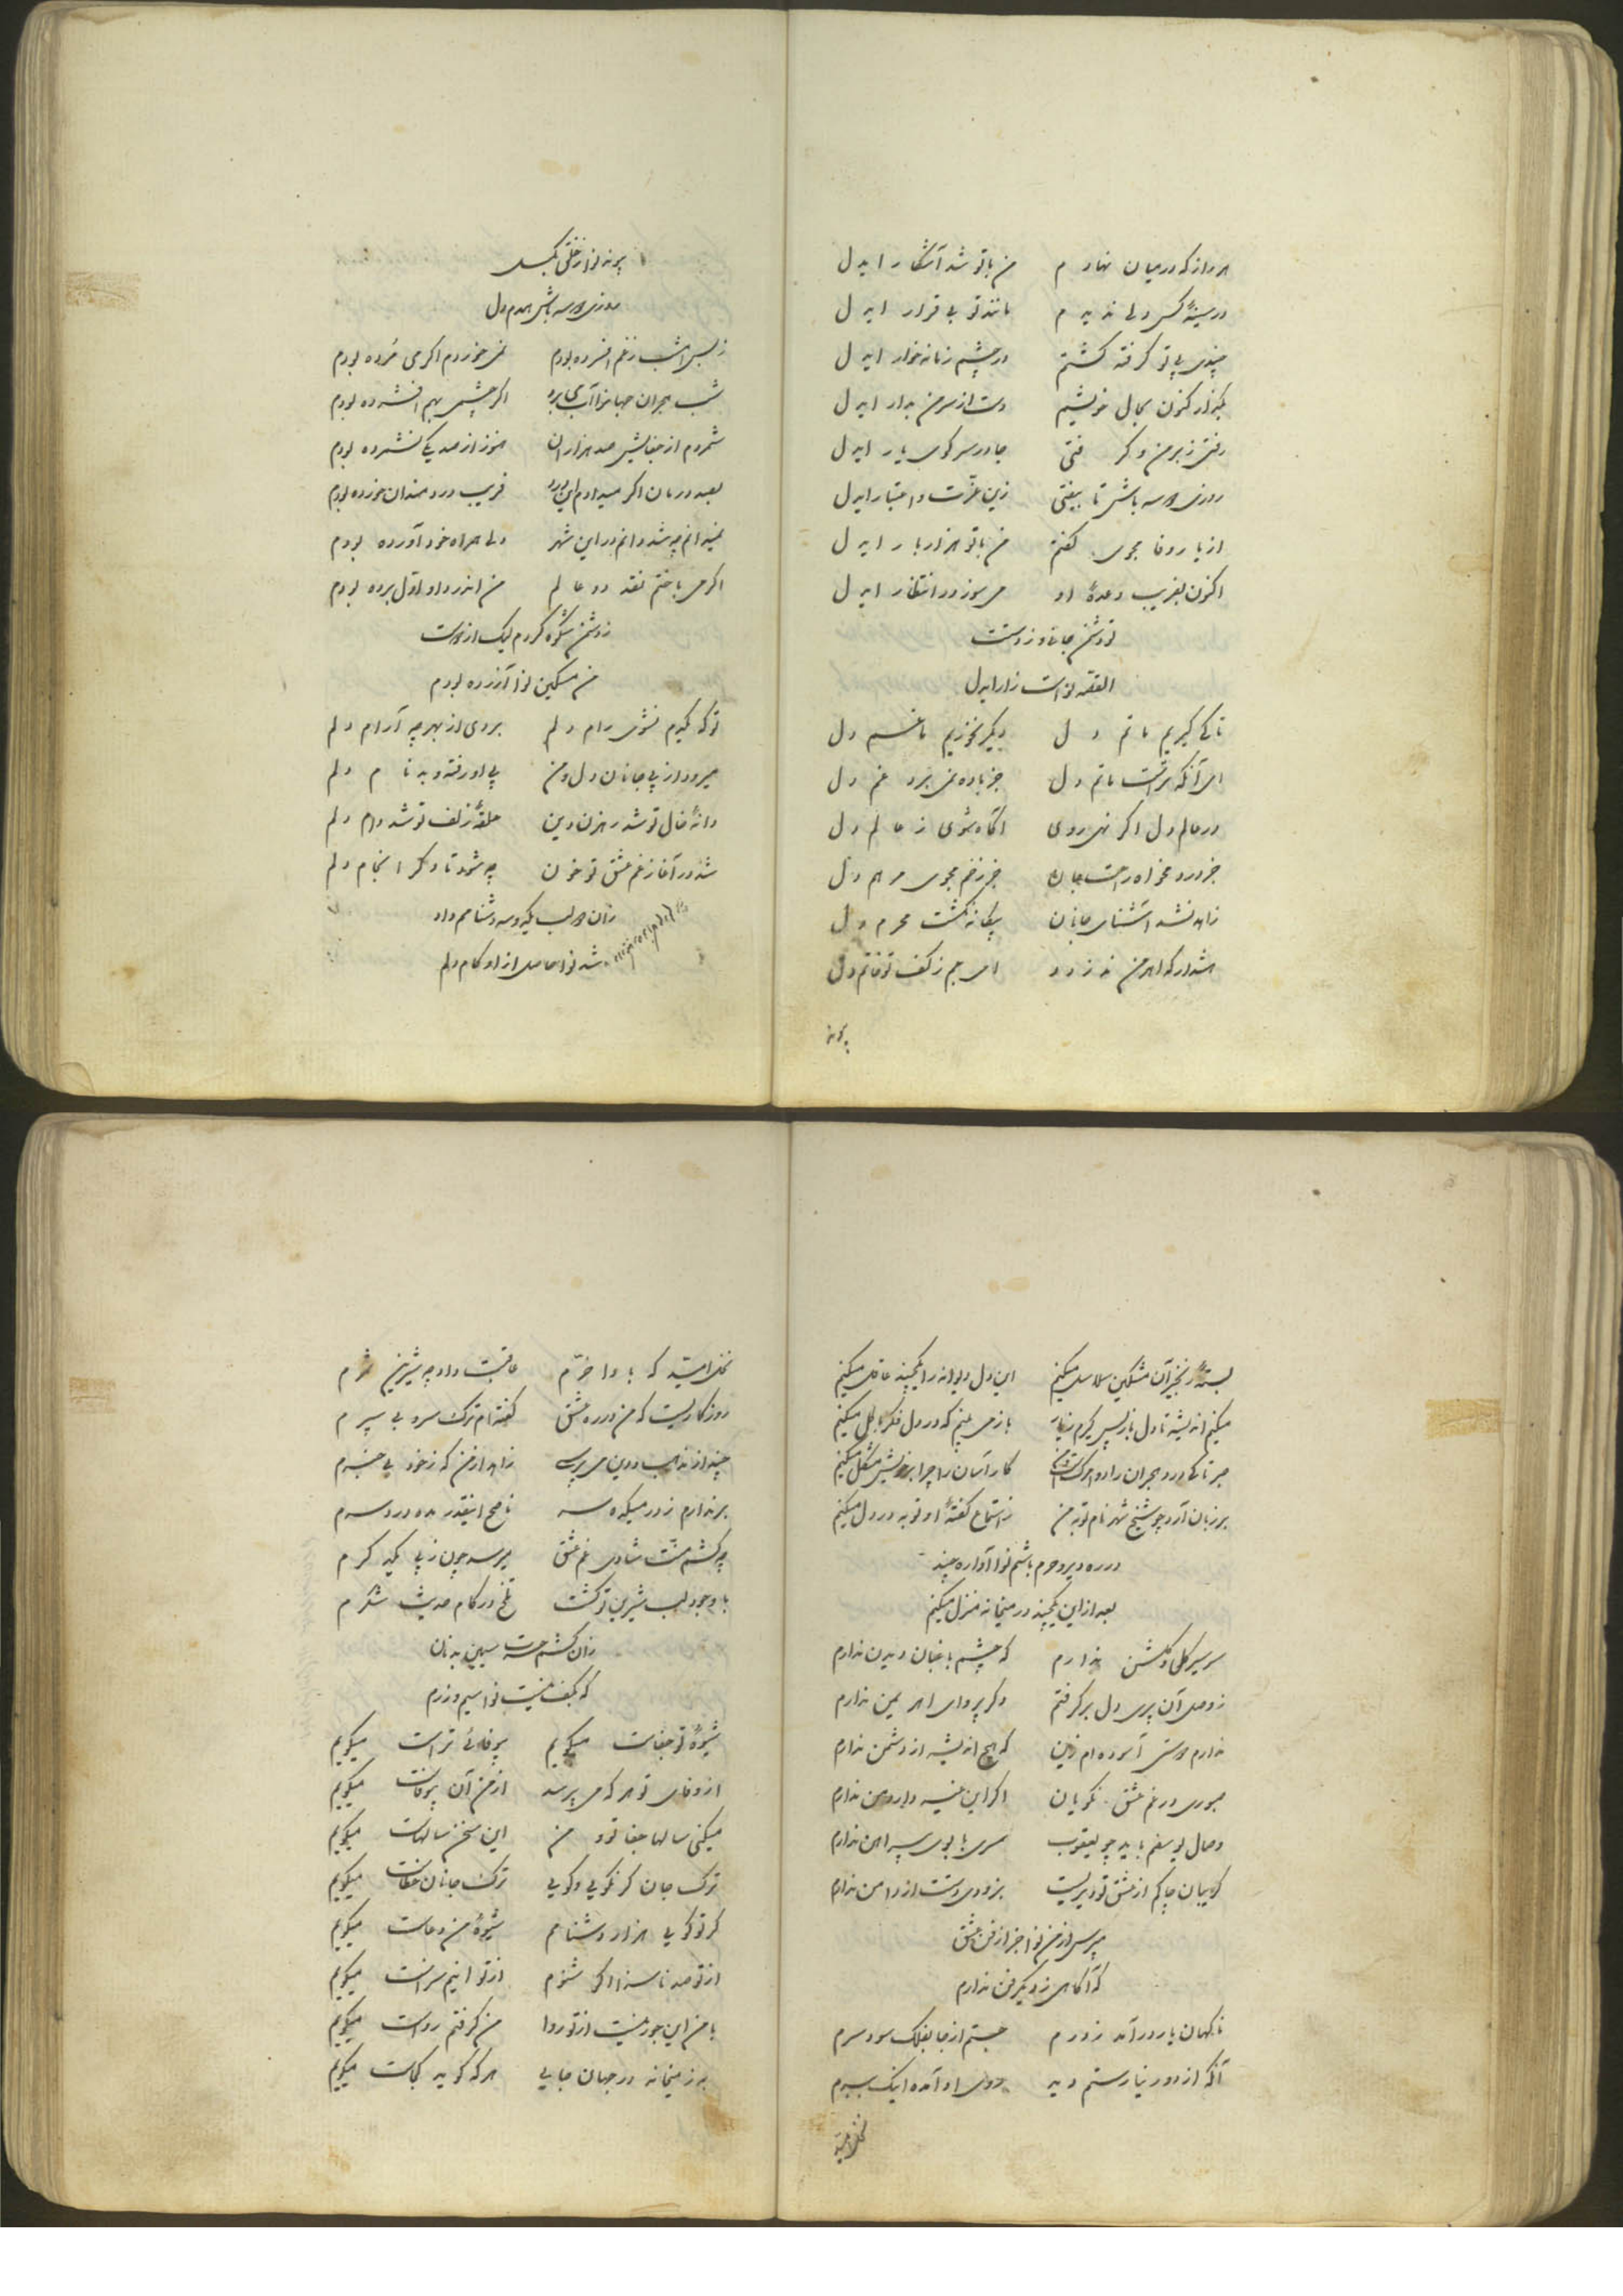 هر راز که در میان نهادم من با تو شد آشکار ایدل
در سینهٔ کس دلی ندیدم مانند تو بی قرار ایدل
چندی پی تو گرفته گشتم در چشم زمانه خوار ایدل
بگذار کنون بحال خویشم دست از سر من بدار ایدل
رفتی ز بر من و گرفتی جا در سر کوی یار ایدل
روزی دو سه باش تا بیفتی زین عزت و اعتبار ایدل
از یار وفا مجوی گفتم من با تو هزار بار ایدل
اکنون بفریب وعدهٔ او میسوز در انتظار ایدل
تو دشمن جانی و ز دستت
القصه نواست زار ایدل
تا کی گیریم ماتم دل دیگر نخوریم ما غم دل
ای آنکه تراست ماتم دل جز باده نمی برد غم دل
در عالم دل اگر نهی روی آگاه شوی ز عالم دل
جز درد مخواه راحت جان جز زخم مجوی مرهم دل
زاهد نشد آشنای جانان بیگانه نگشت محرم دل
هشدار که اهرمن ندزدد ای جم ز کف تو خاتم دل
پیوند
پیوند نوا ز خلق بگسل
روزی دو سه باش همدم دل
ز بس امشب ز غم افسرده بودم نمی خوردم اگر می مرده بودم
شب هجران جهانرا آب می برد اگر چشمی بهم افشرده بودم
شمردم از جفایش صد هزاران هنوز از صد یکی نشمرده بودم
بصد درمان اگر میدادم این درد فریب دردمندان خورده بودم
نمیدانم چه شد دانم در این شهر دلی همراه خود آورده بودم
اگر می باختم نقد دو عالم من اندر داو اول برده بودم
ز دشمن شکوه کردم لیک از دوست
من مسکین نوا آزرده بودم
تو که گیرم نشوی رام دلم بردی از بهر چه آرام دلم
میرود از پی جانان دل و من پی او رفته و بدنام دلم
دانهٔ خال تو شد رهزن دین حلقهٔ زلف تو شد دام دلم
شد در آغاز غم عشق تو خون چه شود تا دگر انجام دلم
زان دو لب یکدو سه دشنامم داد
شد نوا حاصل از او کام دلم
بستهٔ زنجیر آن مشکین سلاسل میکنم این دل دیوانه را یکچند عاقل میکنم
میکنم اندیشه تا دل باز پس گیرم ز یار باز می بینم که در دل فکر باطل میکنم
صبر تا کی درد هجران را دوا مرگ است و من کار آسان را چرا بر خویش مشکل میکنم
بر زبان آرد چو شیخ شهر نام توبه من ز استماع گفتهٔ او توبه در دل میکنم
در ره دیر و حرم باشم نوا آواره چند
بعد از این یکچند در میخانه منزل میکنم
سر سیر گل و گلشن ندارم که چشم باغبان دیدن ندارم
ز وصل آن پری دل برگرفتم دگر پروای اهریمن ندارم
ندارم دوستی آسوده ام زین که هیچ اندیشه از دشمن ندارم
صبوری در غم عشق نکویان اگر این نیست داروی من ندارم
وصال یوسفم باید چو یعقوب سری با بوی پیراهن ندارم
گریبان چاکم از عشق تو دیریست بزودی دست از دامن ندارم
مپرس از من نوا جز از فن عشق
که آگاهی ز دیگر فن ندارم
ناگهان یار در آمد ز درم جستم از جا بفلک سود سرم
آنکه از دور نیارستم دید دوی او آمده اینک ببرم
نخل امید
نخل امید که باد خرم عاقبت داد چه شیرین ثمرم
روزگاریست که من در ره عشق گفته ام ترک سر و بی سپرم
چند از مذهب و دین می پرسی زاهد از من که ز خود بی خبرم
بر ندارم ز در میکده سر ناصح اینقدر مده درد سرم
چه کشم منت شادی غم عشق میرسد چون ز پی یکدگرم
با وجود لب شیرین تو گشت تلخ در کام حدیث شکرم
زان کشم حسرت سیمین بدنان
که بکف نیست نوا سیم و زرم
شیوهٔ تو جفاست میگویم بیوفائی تراست میگویم
از وفای تو هر که می پرسد از من آن بیوفاست میگویم
میکنی سالها جفا تو و من این سخن سالهاست میگویم
ترک جان گر نگویی و گویی ترک جانان خطاست میگویم
گر تو گویی هزار دشنامم شیوهٔ من دعاست میگویم
از تو صد ناسزا اگر شنوم از تو اینم سزاست میگویم
با من این جور نیست از تو روا من گرفتم رواست میگویم
به ز میخانه در جهان جایی هر که گوید کجاست میگویم